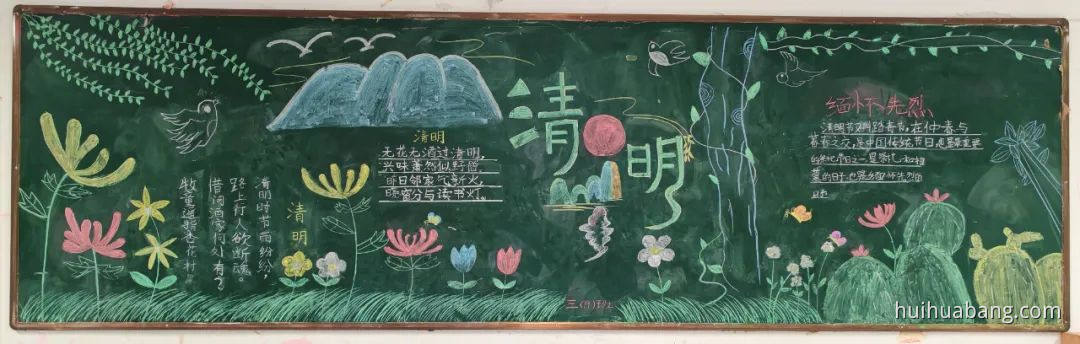 清明时节雨纷纷，
路上行人欲断魂。
借问酒家何处有？
牧童遥指杏花村。
清明
清明
无花无酒过清明，
兴味萧然似野僧。
昨日邻家乞新火，
晓窗分与读书灯。
清明
缅怀先烈
清明节又叫踏青节，在仲春与
暮春之交，是中国传统节日，也是最重要
的祭祀节日之一，是祭祖和扫
墓的日子，也是缅怀先烈的
日子
huihuabang.com